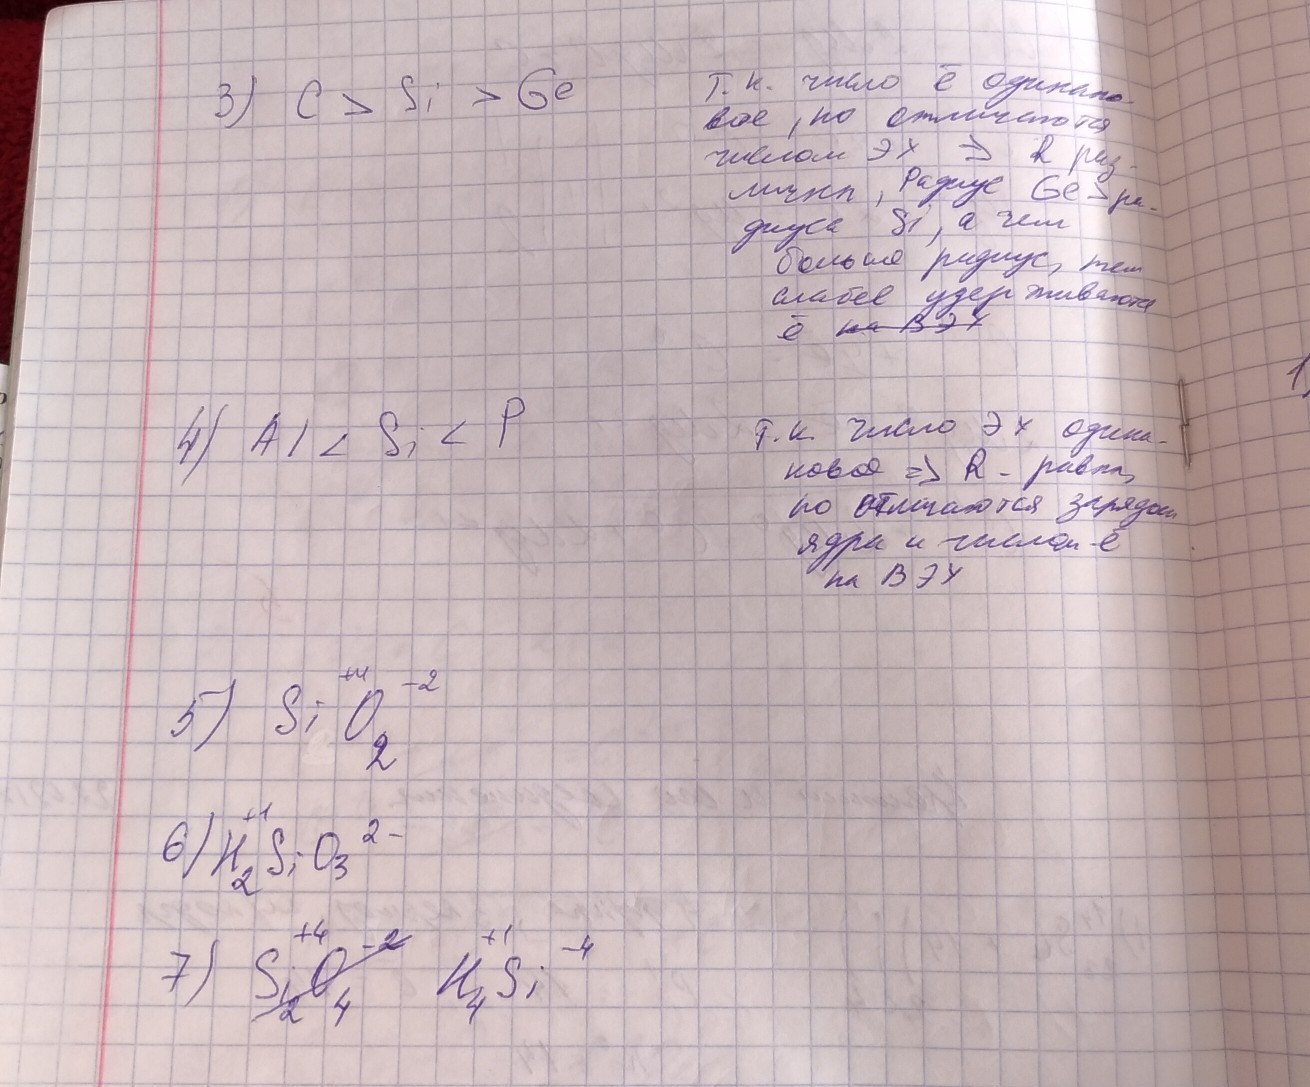 3) C > Si > Ge
Т.к. число ē одинако-
вое, но отличаются
числом ЭУ => R раз-
личны, Радиус Ge > ра-
диуса Si, а чем
больше радиус, тем
слабее удерживаются
ē на ВЭУ
4) Al < Si < P
Т.к. число ЭУ одина-
ковое => R - равны,
но отличаются зарядом
ядра и числом ē
на ВЭУ
5) Si⁺⁴O₂⁻²
6) H₂⁺¹SiO₃²⁻
7) Si₂⁺⁴O₄⁻² H₄⁺¹Si⁻⁴